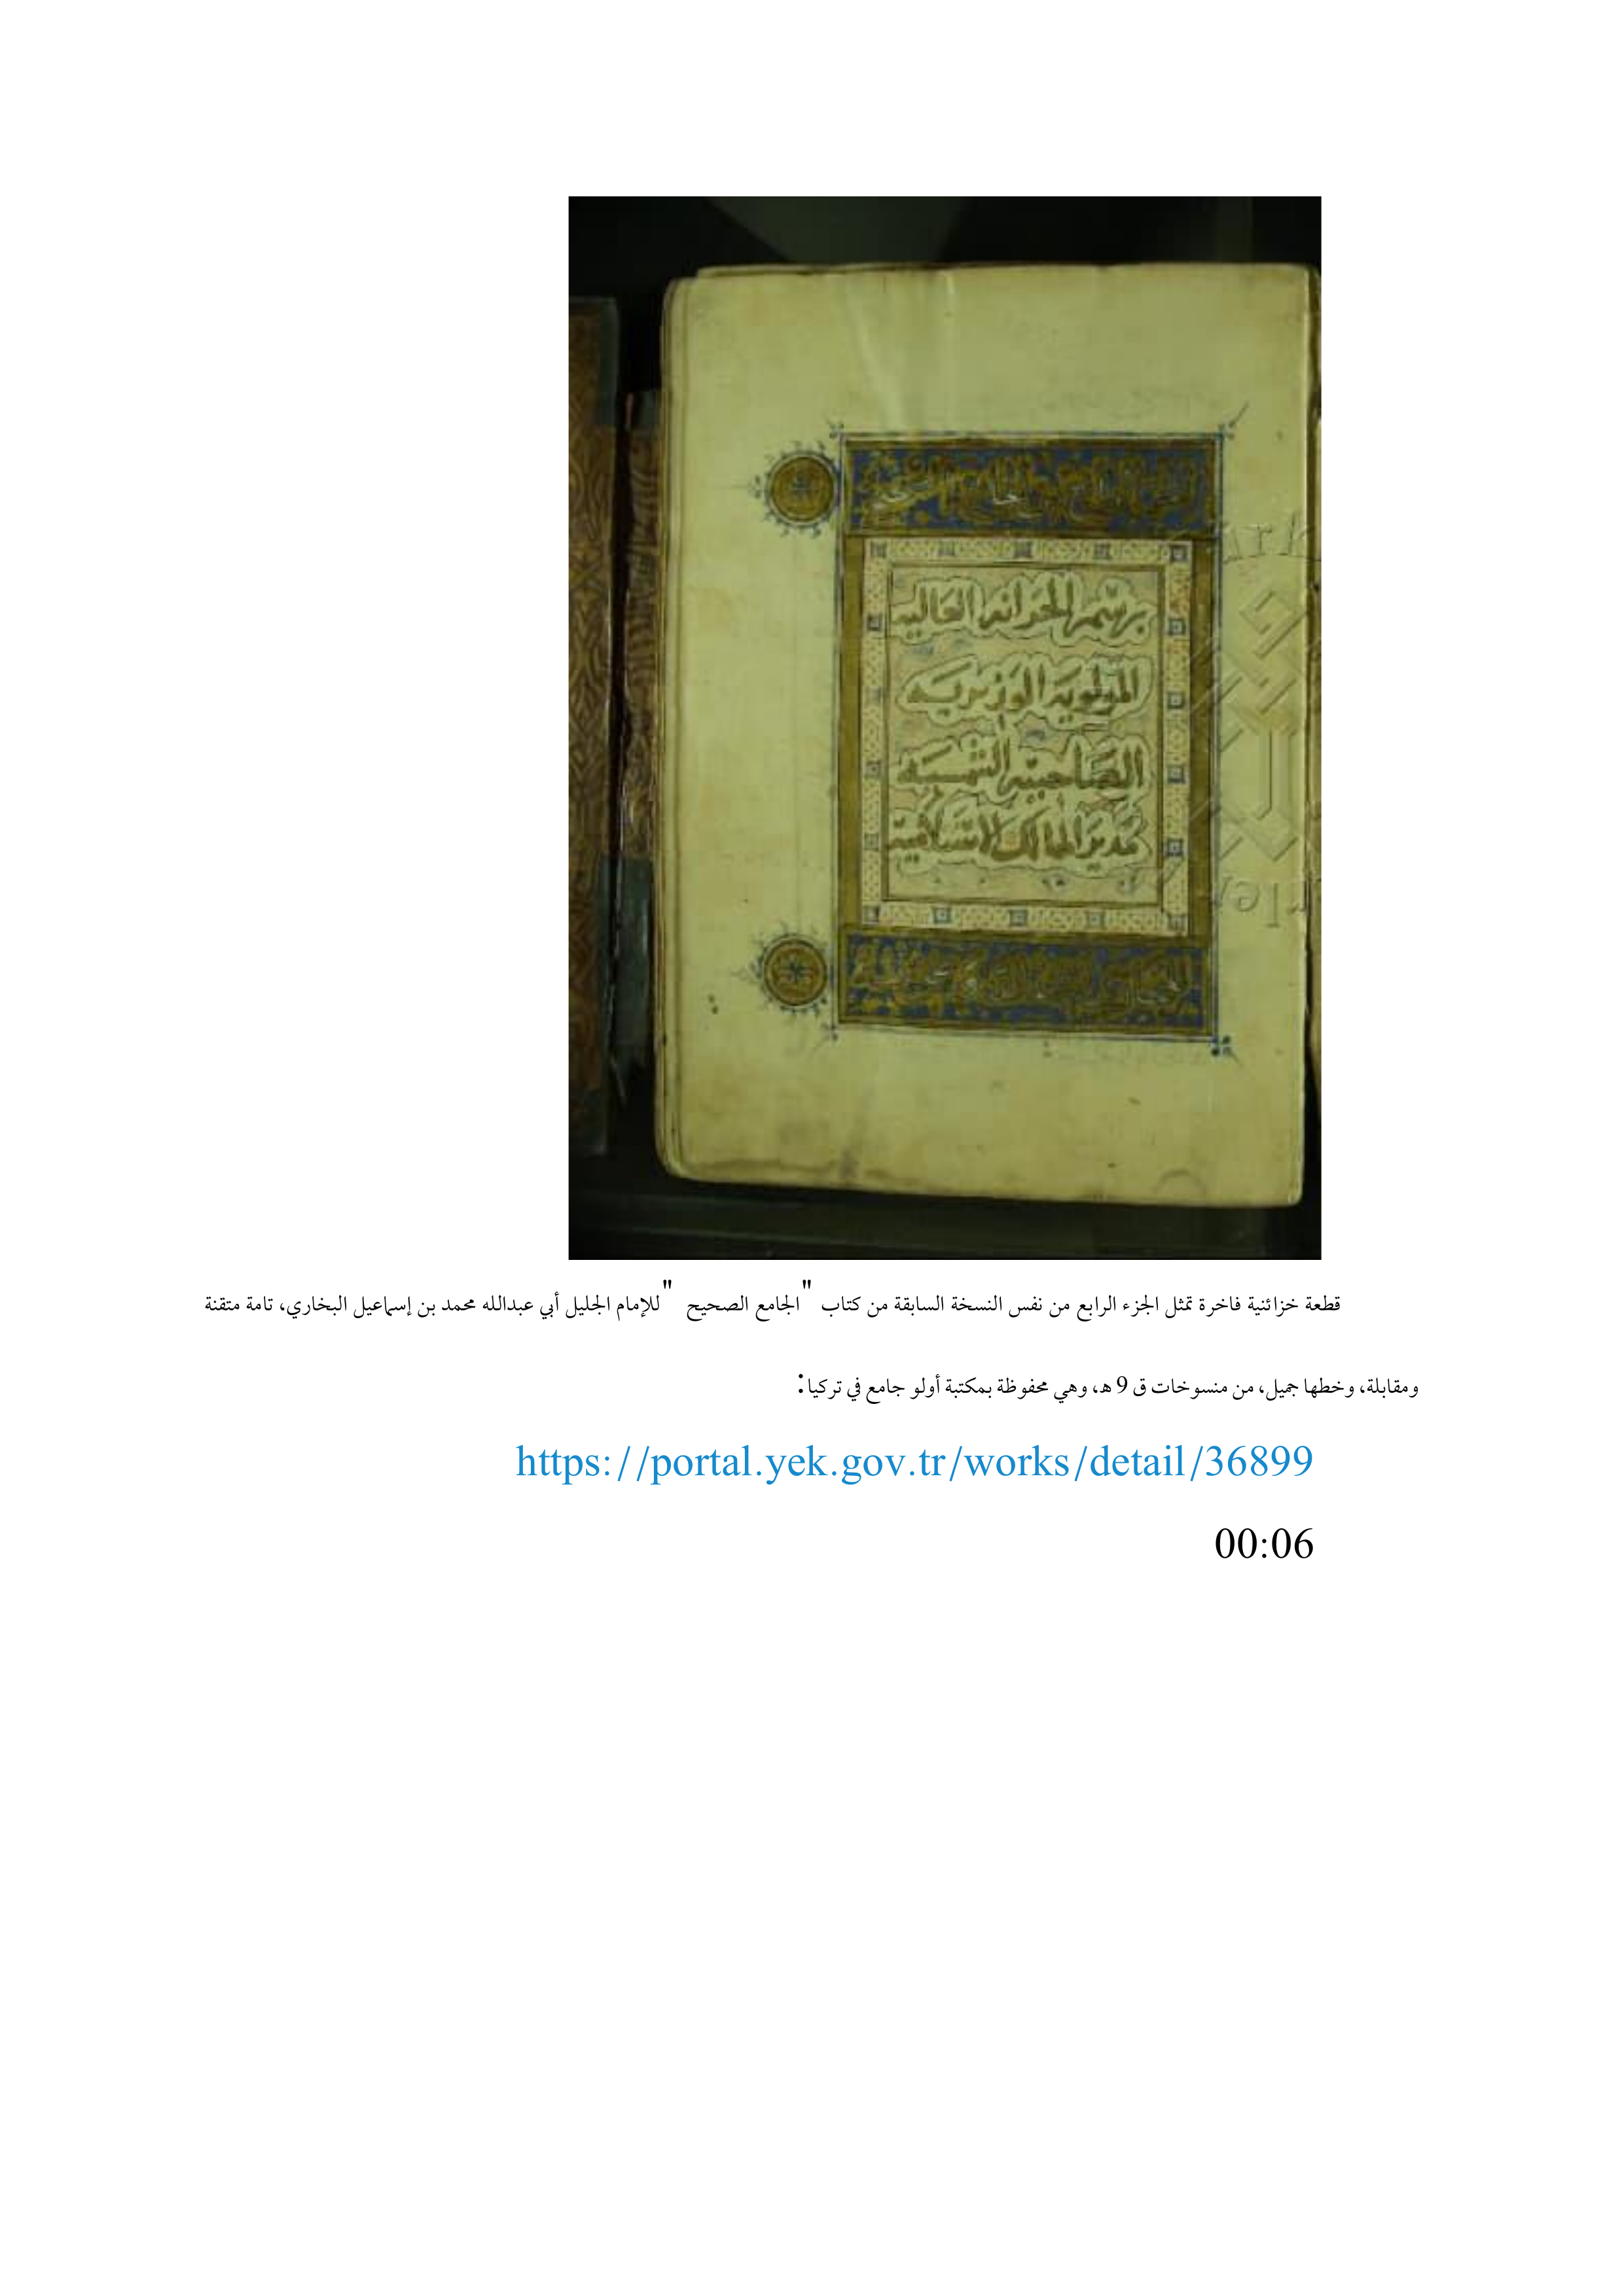 برسم الخزانه العاليه
المولويه الوزيريه
الصاحبيه الشمسيه
مدبر الممالك
قطعة خزائنية فاخرة تمثل الجزء الرابع من نفس النسخة السابقة من كتاب "الجامع الصحيح" للإمام الجليل أبي عبدالله محمد بن إسماعيل البخاري، تامة متقنة
ومقابلة، وخطها جميل، من منسوخات ق 9 هـ، وهي محفوظة بمكتبة أولو جامع في تركيا:
https://portal.yek.gov.tr/works/detail/36899
00:06